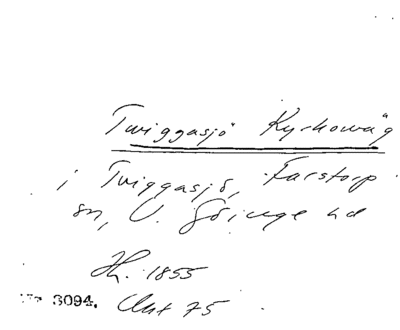 Twiggasjö Kyrkowäg
i Twiggasjö, Farstorp
sn, V. Göinge hd
Hh. 1855
Nr 3094. Akt 75